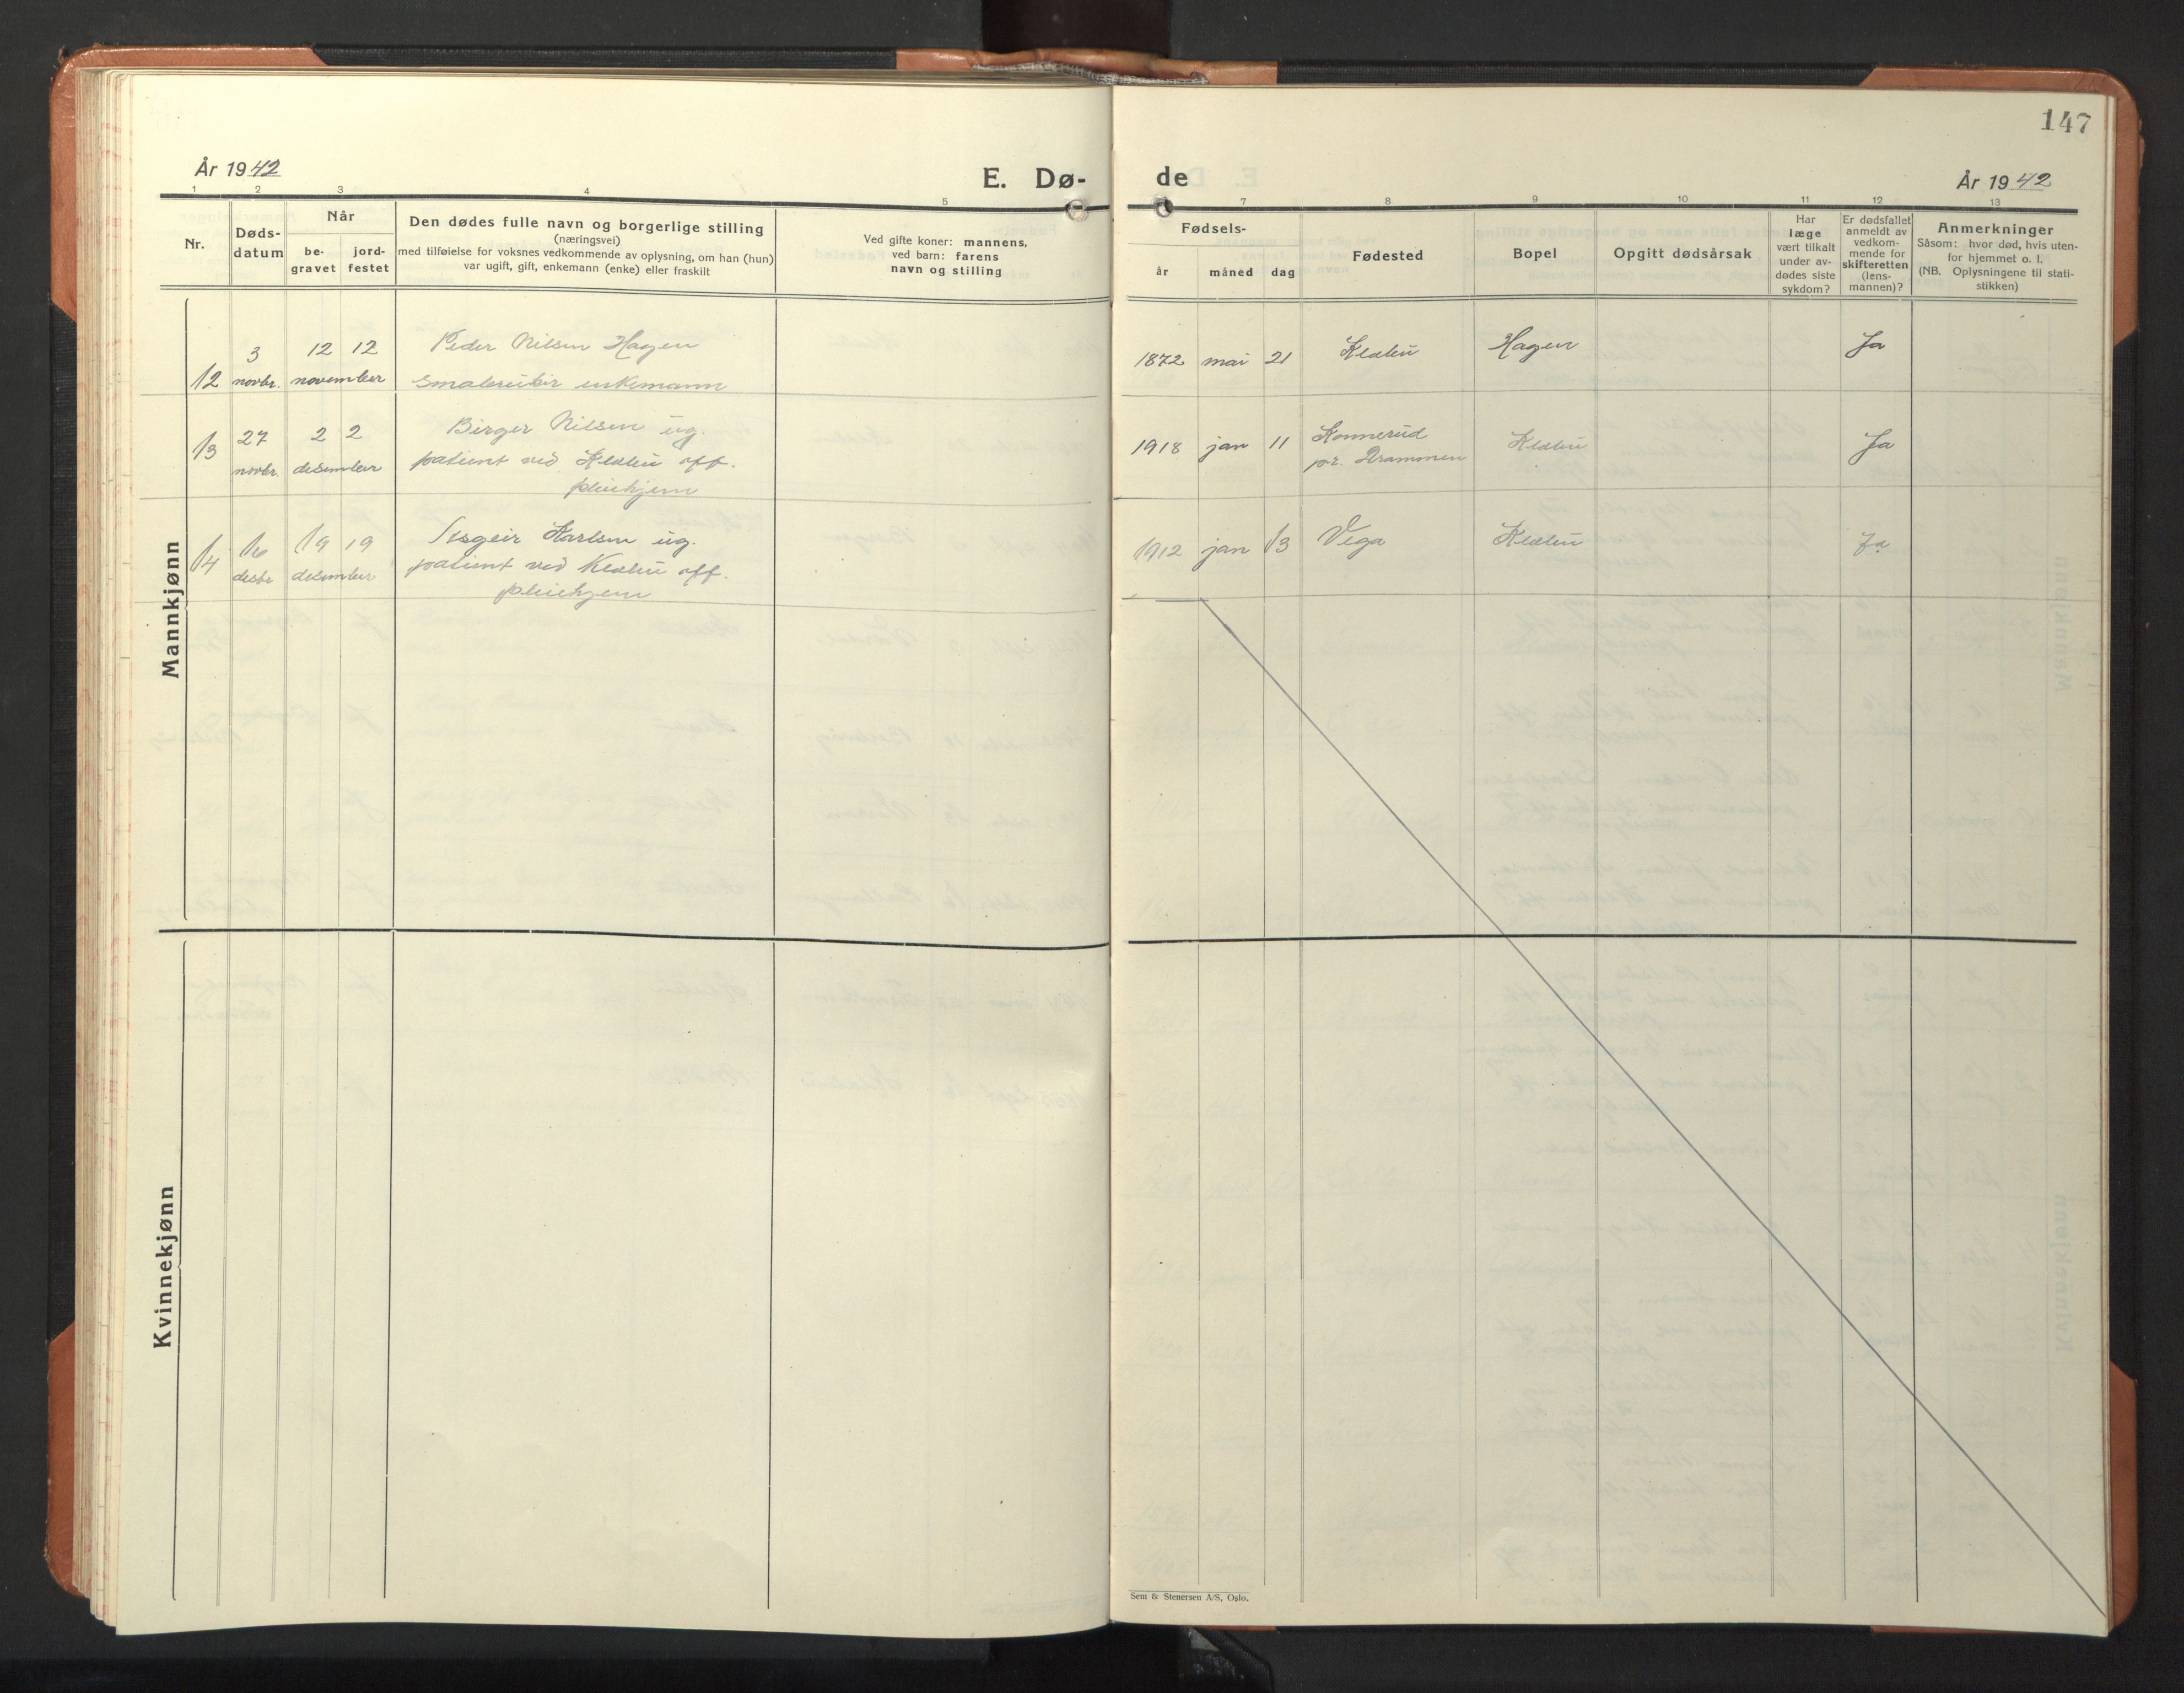 147
År 1942
E. Dø-
de
År 1942
1 2 3 4 5
7 8 9 10 11 12 13
Nr.
Døds-
datum
Når
be-
gravet
jord-
festet
Den dødes fulle navn og borgerlige stilling
(næringsvei)
med tilføielse for voksnes vedkommende av oplysning, om han (hun)
var ugift, gift, enkemann (enke) eller fraskilt
Ved gifte koner: mannens,
ved barn: farens
navn og stilling
Fødsels-
år måned dag
Fødested
Bopel
Opgitt dødsårsak
Har
læge
vært tilkalt
under av-
dødes siste
sykdom?
Er dødsfallet
anmeldt av
vedkom-
mende for
skifteretten
(lens-
mannen)?
Anmerkninger
Såsom: hvor død, hvis uten-
for hjemmet o. l.
(NB. Oplysningene til stati-
stikken)
Mannkjønn
3 12 12 Peder Nilsen Hagen
12 novbr. november enkemann
1872 mai 21 Klæbu Hagen Ja
27 2 2 Birger Nilsen ug.
13 novbr. desember patient ved Klæbu off.
pleiehjem
1918 jan 11 Konnerud
pr. Drammen
Klæbu Ja
14 16 19 19 Asgeir Karlsen ug.
desbr desember patient ved Klæbu off.
pleiehjem
1912 jan 13 Vega Klæbu Ja
Kvinnekjønn
Sem & Stenersen A/S, Oslo.